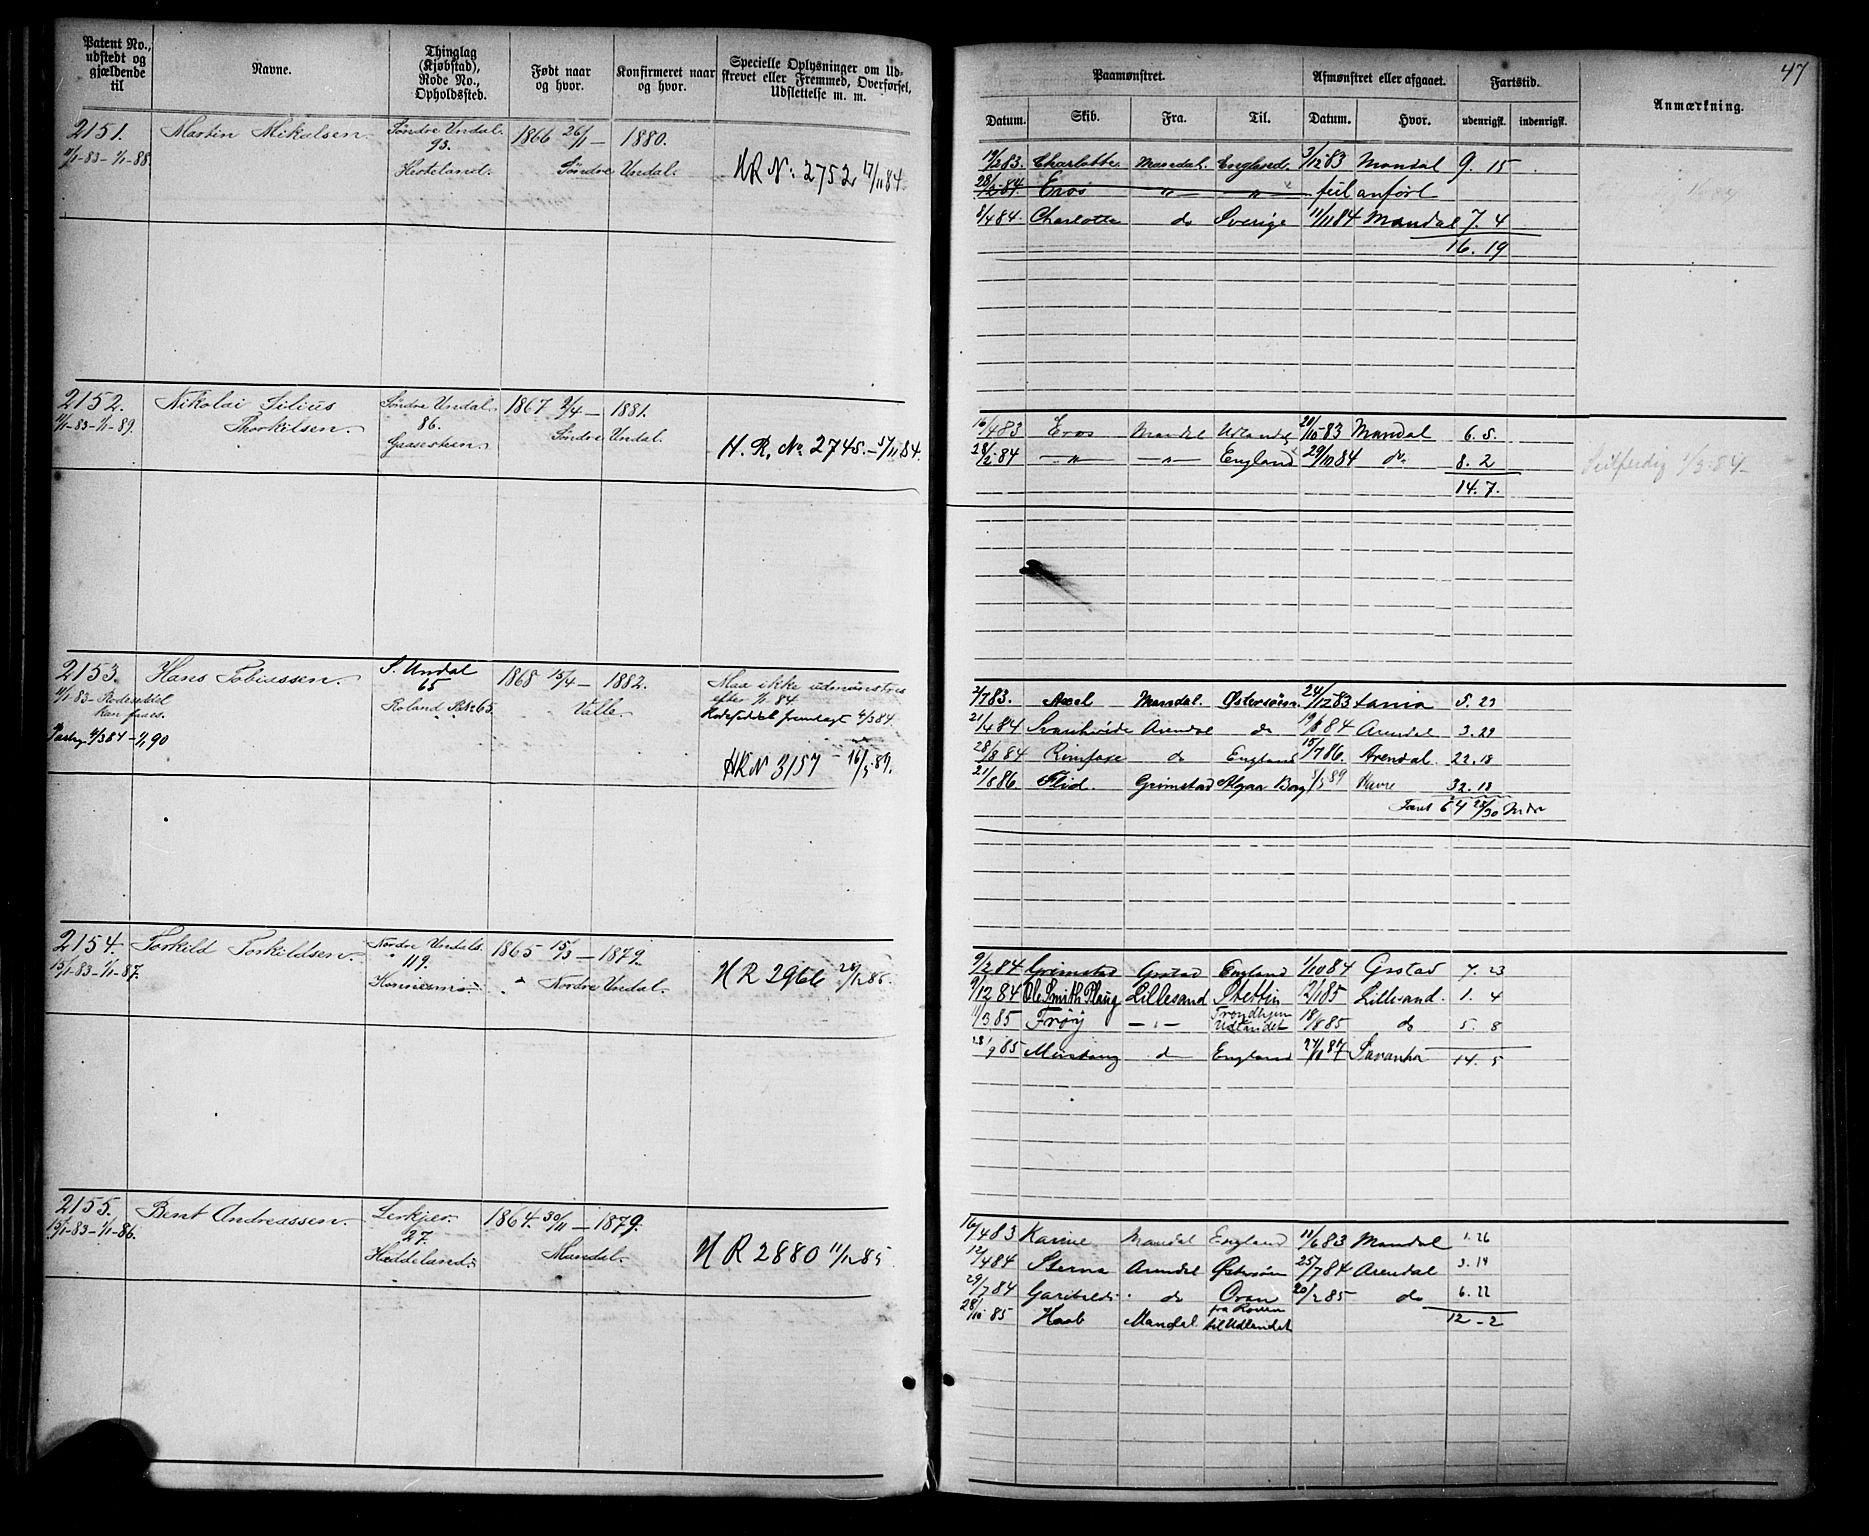 47
Patent No., udstedt og gjældende til
Navne.
Thinglag (Kjøbstad), Rode No., Opholdssted.
Født naar og hvor.
Konfirmeret naar og hvor.
Specielle Oplysninger om Udskrevet eller Fremmed, Overførsel, Udslettelse m. m.
Paamønstret.
Afmønstret eller afgaaet.
Fartstid.
Anmærkning.
Datum. Skib. Fra. Til. Datum. Hvor. udenrigsk. indenrigsk.
2151. Martin Mikalsen. Søndre Undal. 1866 26/1 — 1880.
11/1-83-1/1-88. 93.
Hesteland. Søndre Undal. HR No: 2752 17/11 84.
19/2 83. Charlotte Mandal. England. 3/12 83 Mandal 9. 15
28/2 84. Eros " " feil anført
5/4 84. Charlotte do Sverige 11/11 84 Mandal 7. 4
16. 19
2152. Nikolai Silius Søndre Undal. 1867 2/4 — 1881.
11/1-83-1/1-89. Thorkilsen. 86.
Gaasesteen. Søndre Undal. H. R. No 2745. - 5/11 84.
16/4 83 Eros Mandal Udlandet 20/10 83 Mandal 6. 5.
28/2 84 — " — — " — England 29/10 84 do. 8. 2
14. 7.
Seilferdig 1/3 84
2153. Hans Tobiassen. S. Undal 1868 15/4 — 1882. Maa ikke udmønstres
11/1-83- Rodeseddel 65 efter 1/1 84
kan faaes. Roland No 65. Valle. Rodeseddel fremlagt 4/3 84
4/3 84 - 1/1 90
HR N 3157 - 16/5 89.
2/7 83. Axel Mandal. Østersøen. 24/12 83 5. 23
21/4 84 Svanhvide Arendal do 19/8 84 Arendal 3. 29
28/8 84 Rimfaxe do England 15/7 86. Arendal. 22. 18
21/8 86. Flid. Grimstad 5/5 89 Havre 32. 18
2154. Torkild Torkildsen. Nordre Undal. 1865 15/3 — 1879.
15/1-83-1/1-87. 119.
" Nordre Undal. HR 2966 28/12 86.
9/2 84 Grimstad Grstad England 1/10 84 Grstad 7. 23
9/12 84 Ole Smith Ploug Lillesand Stettin 12/1 85 Lillesand. 1. 4
11/3 85 Frøy — " — Trondhjem Udlandet 18/8 85 do 5. 8
28/9 85 Mustang do England 14. 5
2155. Bent Andreassen. 1864. 30/11 — 1879.
15/1-83-1/1-86. 27.
Heddeland. Mandal. HR 2880 11/12 85
16/4 83 Karine Mandal England 11/6 83 Mandal 1. 26
12/4 84 Sterna Arendal Østersøen 25/7 84 Arendal 3. 14
29/7 84 Garibaldi do Oran 20/2 85 do 6. 22
28/10 85 Haab Mandal fra Rouen til Udlandet 12 - 2